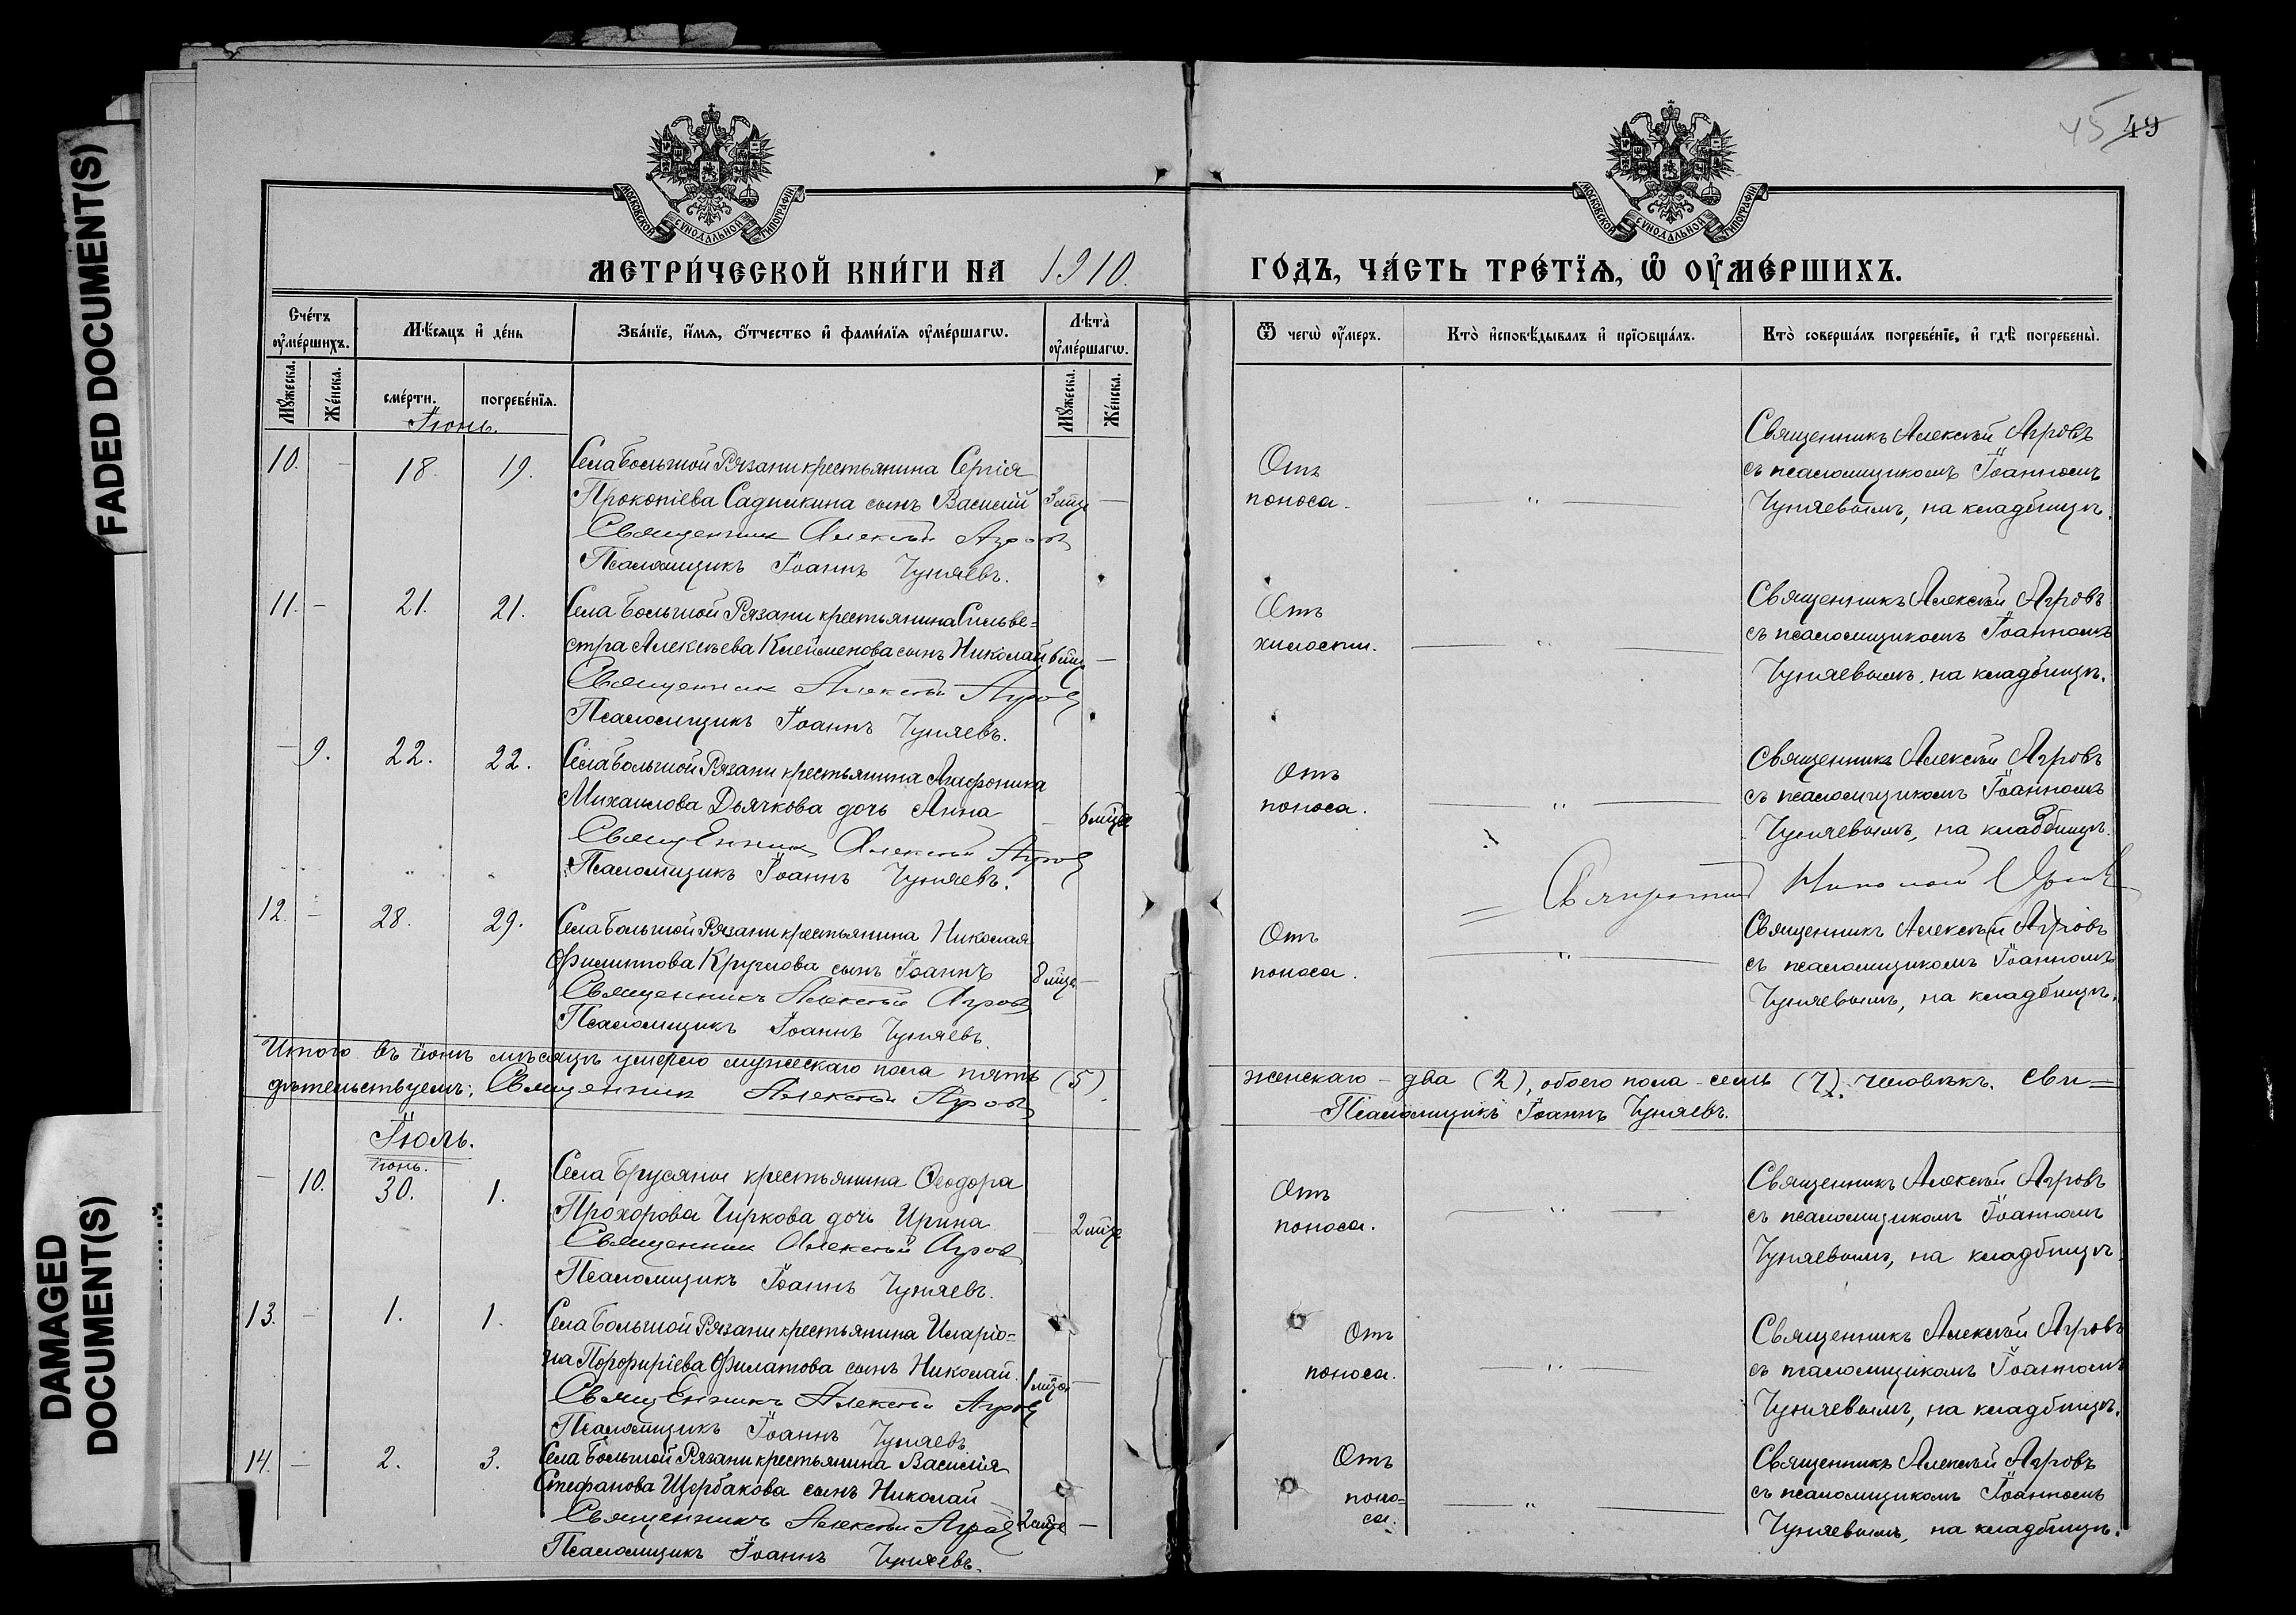 FADED DOCUMENT(S)
DAMAGED
DOCUMENT(S)
45 49
МОСКОВСКОЙ СѴНОДАЛЬНОЙ ТИПОГРАФІИ
МОСКОВСКОЙ СѴНОДАЛЬНОЙ ТИПОГРАФІИ
МЕТРИ́ЧЕСКОЙ КНИ́ГИ НА 1910.
ГО́ДЪ, ЧА́СТЬ ТРЕ́ТЇѦ, Ѡ҆ ОУ҆МЕ́РШИХЪ.
Сче́тъ оу҆ме́ршихъ.
Мѣ́сѧцъ и҆ де́нь
Зва́нїе, и҆́мѧ, ѻ҆́тчество и҆ фами́лїѧ оу҆ме́ршагѡ.
Лѣта̀ оу҆ме́ршагѡ.
Ѿ чегѡ̀ оу҆́меръ.
Кто̀ и҆сповѣ́дывалъ и҆ прїѻбща́лъ.
Кто̀ соверша́лъ погребе́нїе, и҆ гдѣ̀ погребены̀.
Мꙋ́жеска.
Же́нска.
сме́рти.
погребе́нїѧ.
Мꙋ́жеска.
Же́нска.
Іюнь.
10. - 18. 19. Села Большой Рязани крестьянина Сергія
Прокопіева Садчикина сынъ Василій 3 мца —
Священникъ Алексѣй Агровъ
Псаломщикъ Іоаннъ Чуняевъ.
Отъ
поноса.
— " —
Священникъ Алексѣй Агровъ
съ псаломщикомъ Іоанномъ
Чуняевымъ, на кладбищѣ.
11. - 21. 21. Села Большой Рязани крестьянина Сильве=
стра Алексѣева Клейменова сынъ Николай 6 мца —
Священникъ Алексѣй Агровъ
Псаломщикъ Іоаннъ Чуняевъ.
Отъ
хилости.
— " —
Священникъ Алексѣй Агровъ
съ псаломщикомъ Іоанномъ
Чуняевымъ, на кладбищѣ.
- 9. 22. 22. Села Большой Рязани крестьянина Агафоника
Михаилова Дьячкова дочь Анна — 6 мца
Священникъ Алексѣй Агровъ
Псаломщикъ Іоаннъ Чуняевъ.
Отъ
поноса.
— " —
Священникъ Алексѣй Агровъ
съ псаломщикомъ Іоанномъ
Чуняевымъ, на кладбищѣ.
Николай
12. - 28. 29. Села Большой Рязани крестьянина Николая
Филиппова Круглова сынъ Іоаннъ 8 мца —
Священникъ Алексѣй Агровъ
Псаломщикъ Іоаннъ Чуняевъ.
Отъ
поноса.
— " —
Священникъ Алексѣй Агровъ
съ псаломщикомъ Іоанномъ
Чуняевымъ, на кладбищѣ.
Итого въ іюнѣ мѣсяцѣ умерло мужескаго пола пять (5) женскаго - два (2), обоего пола - семь (7) человѣкъ. Сви=
дѣтельствуемъ: Священникъ Алексѣй Агровъ Псаломщикъ Іоаннъ Чуняевъ.
Іюль.
іюнь.
- 10. 30. 1. Села Брусяны крестьянина Ѳеодора
Прохорова Чиркова дочь Ирина — 2 мца
Священникъ Алексѣй Агровъ
Псаломщикъ Іоаннъ Чуняевъ.
Отъ
поноса.
— " —
Священникъ Алексѣй Агровъ
съ псаломщикомъ Іоанномъ
Чуняевымъ, на кладбищѣ.
13. - 1. 1. Села Большой Рязани крестьянина Иларіо=
на Порфиріева Филатова сынъ Николай 1 мца —
Священникъ Алексѣй Агровъ
Псаломщикъ Іоаннъ Чуняевъ
Отъ
поноса.
— " —
Священникъ Алексѣй Агровъ
съ псаломщикомъ Іоанномъ
Чуняевымъ, на кладбищѣ.
14. - 2. 3. Села Большой Рязани крестьянина Василія
Стефанова Щербакова сынъ Николай
Священникъ Алексѣй Агровъ 2 мца —
Псаломщикъ Іоаннъ Чуняевъ.
Отъ
поно=
са.
— " —
Священникъ Алексѣй Агровъ
съ псаломщикомъ Іоанномъ
Чуняевымъ, на кладбищѣ.